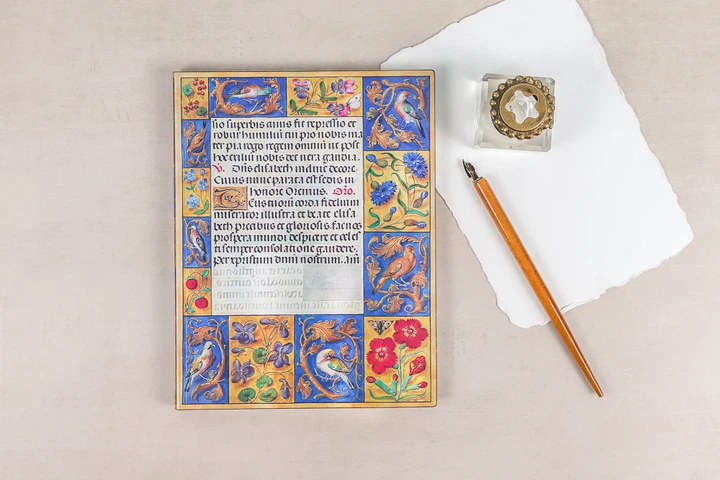 sio superbis anuis fit repressio et
robur humiliū cui pro nobis ma
ter pia rogo regem omniū ut post
hoc exiliū nobis det uera gaudia.
V. Dñs elisabeth induit decore.
Cuius nunc parata est sedes in
honore Oremus. Oro.
Eus tuorū corda fidelium
miserator illustra et beate elisa
beth precibus et gloriosis. facnos
prospera mundi despicere et celes
ti semper consolatione gaudere.
Per xpristum dnm nostrum. am